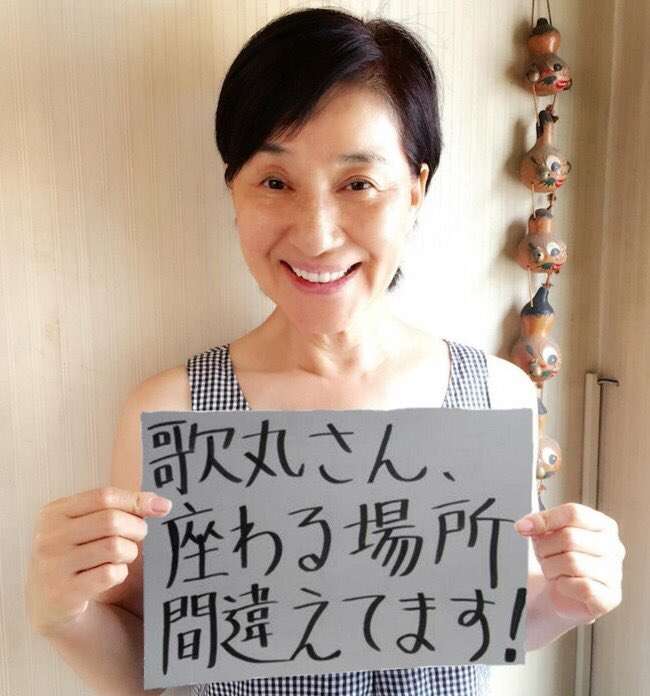 歌丸さん、
座わる場所
間違えてます!